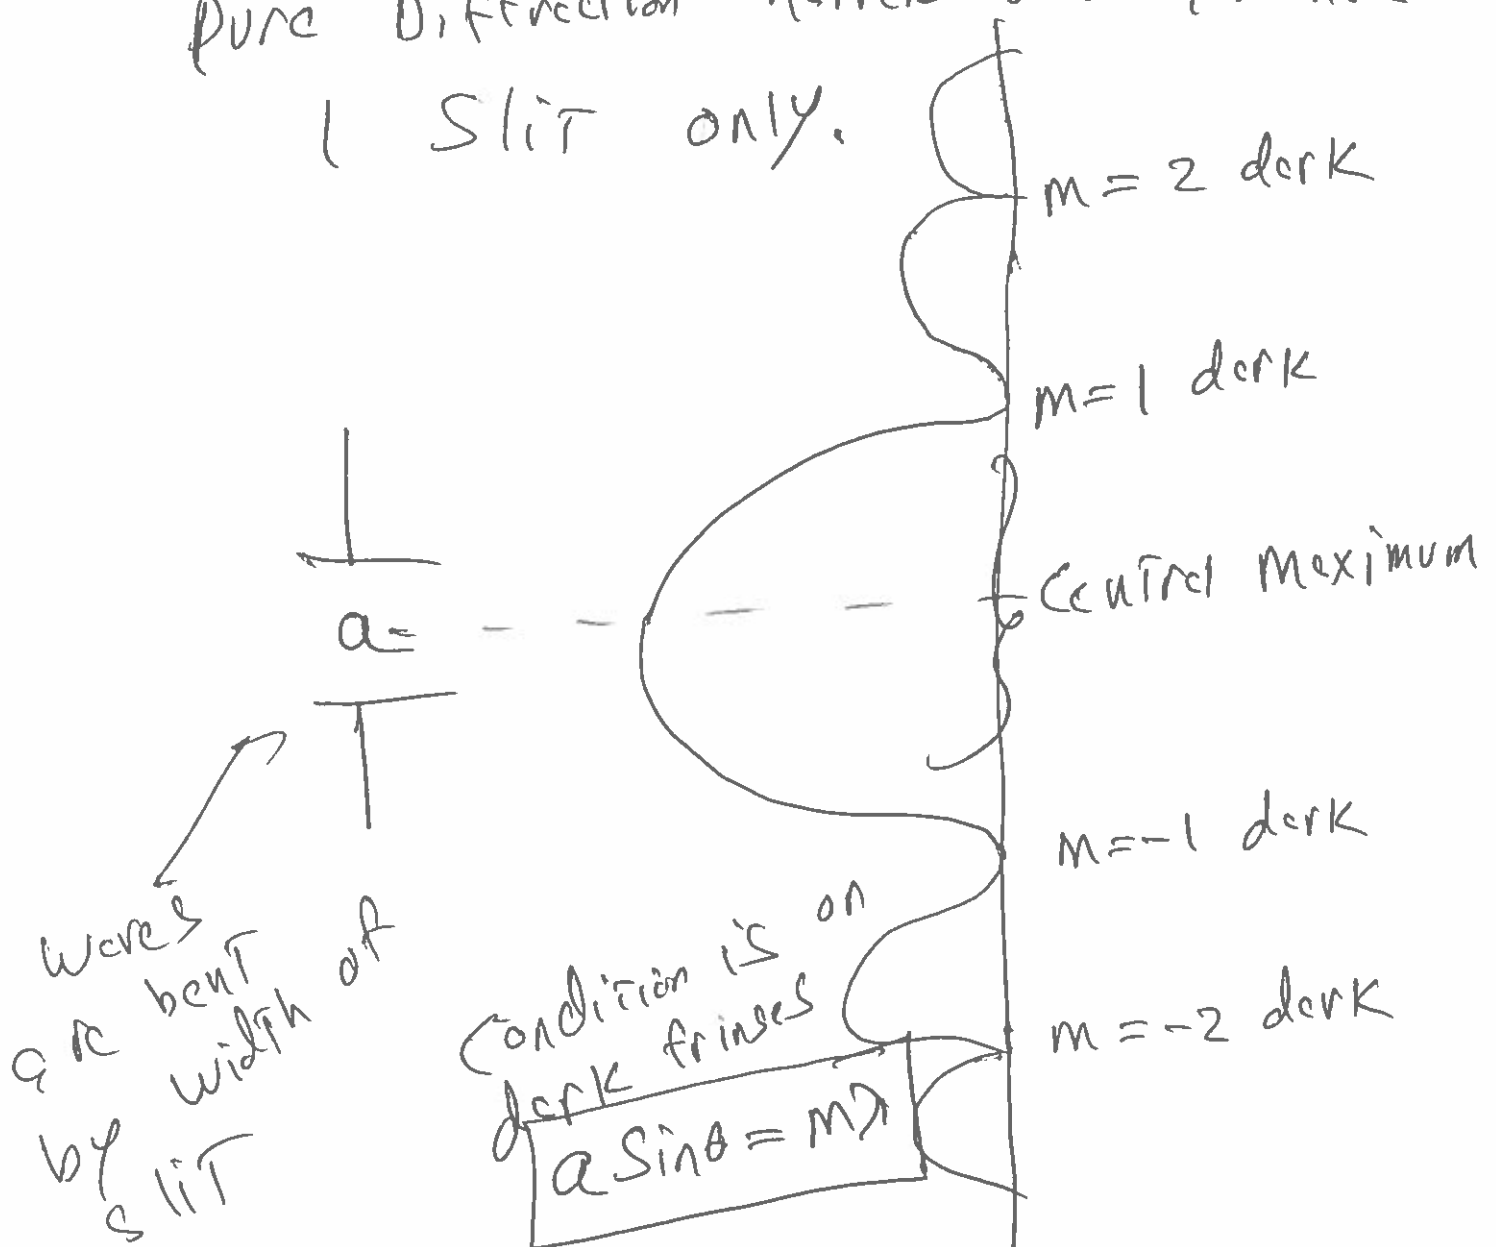 Pure Diffraction
1 Slit only.
m = 2 dark
m = 1 dark
Central Maximum
a =
m = -1 dark
waves
are bent
by width of
slit
Condition is on
dark fringes
a Sinθ = mλ
m = -2 dark